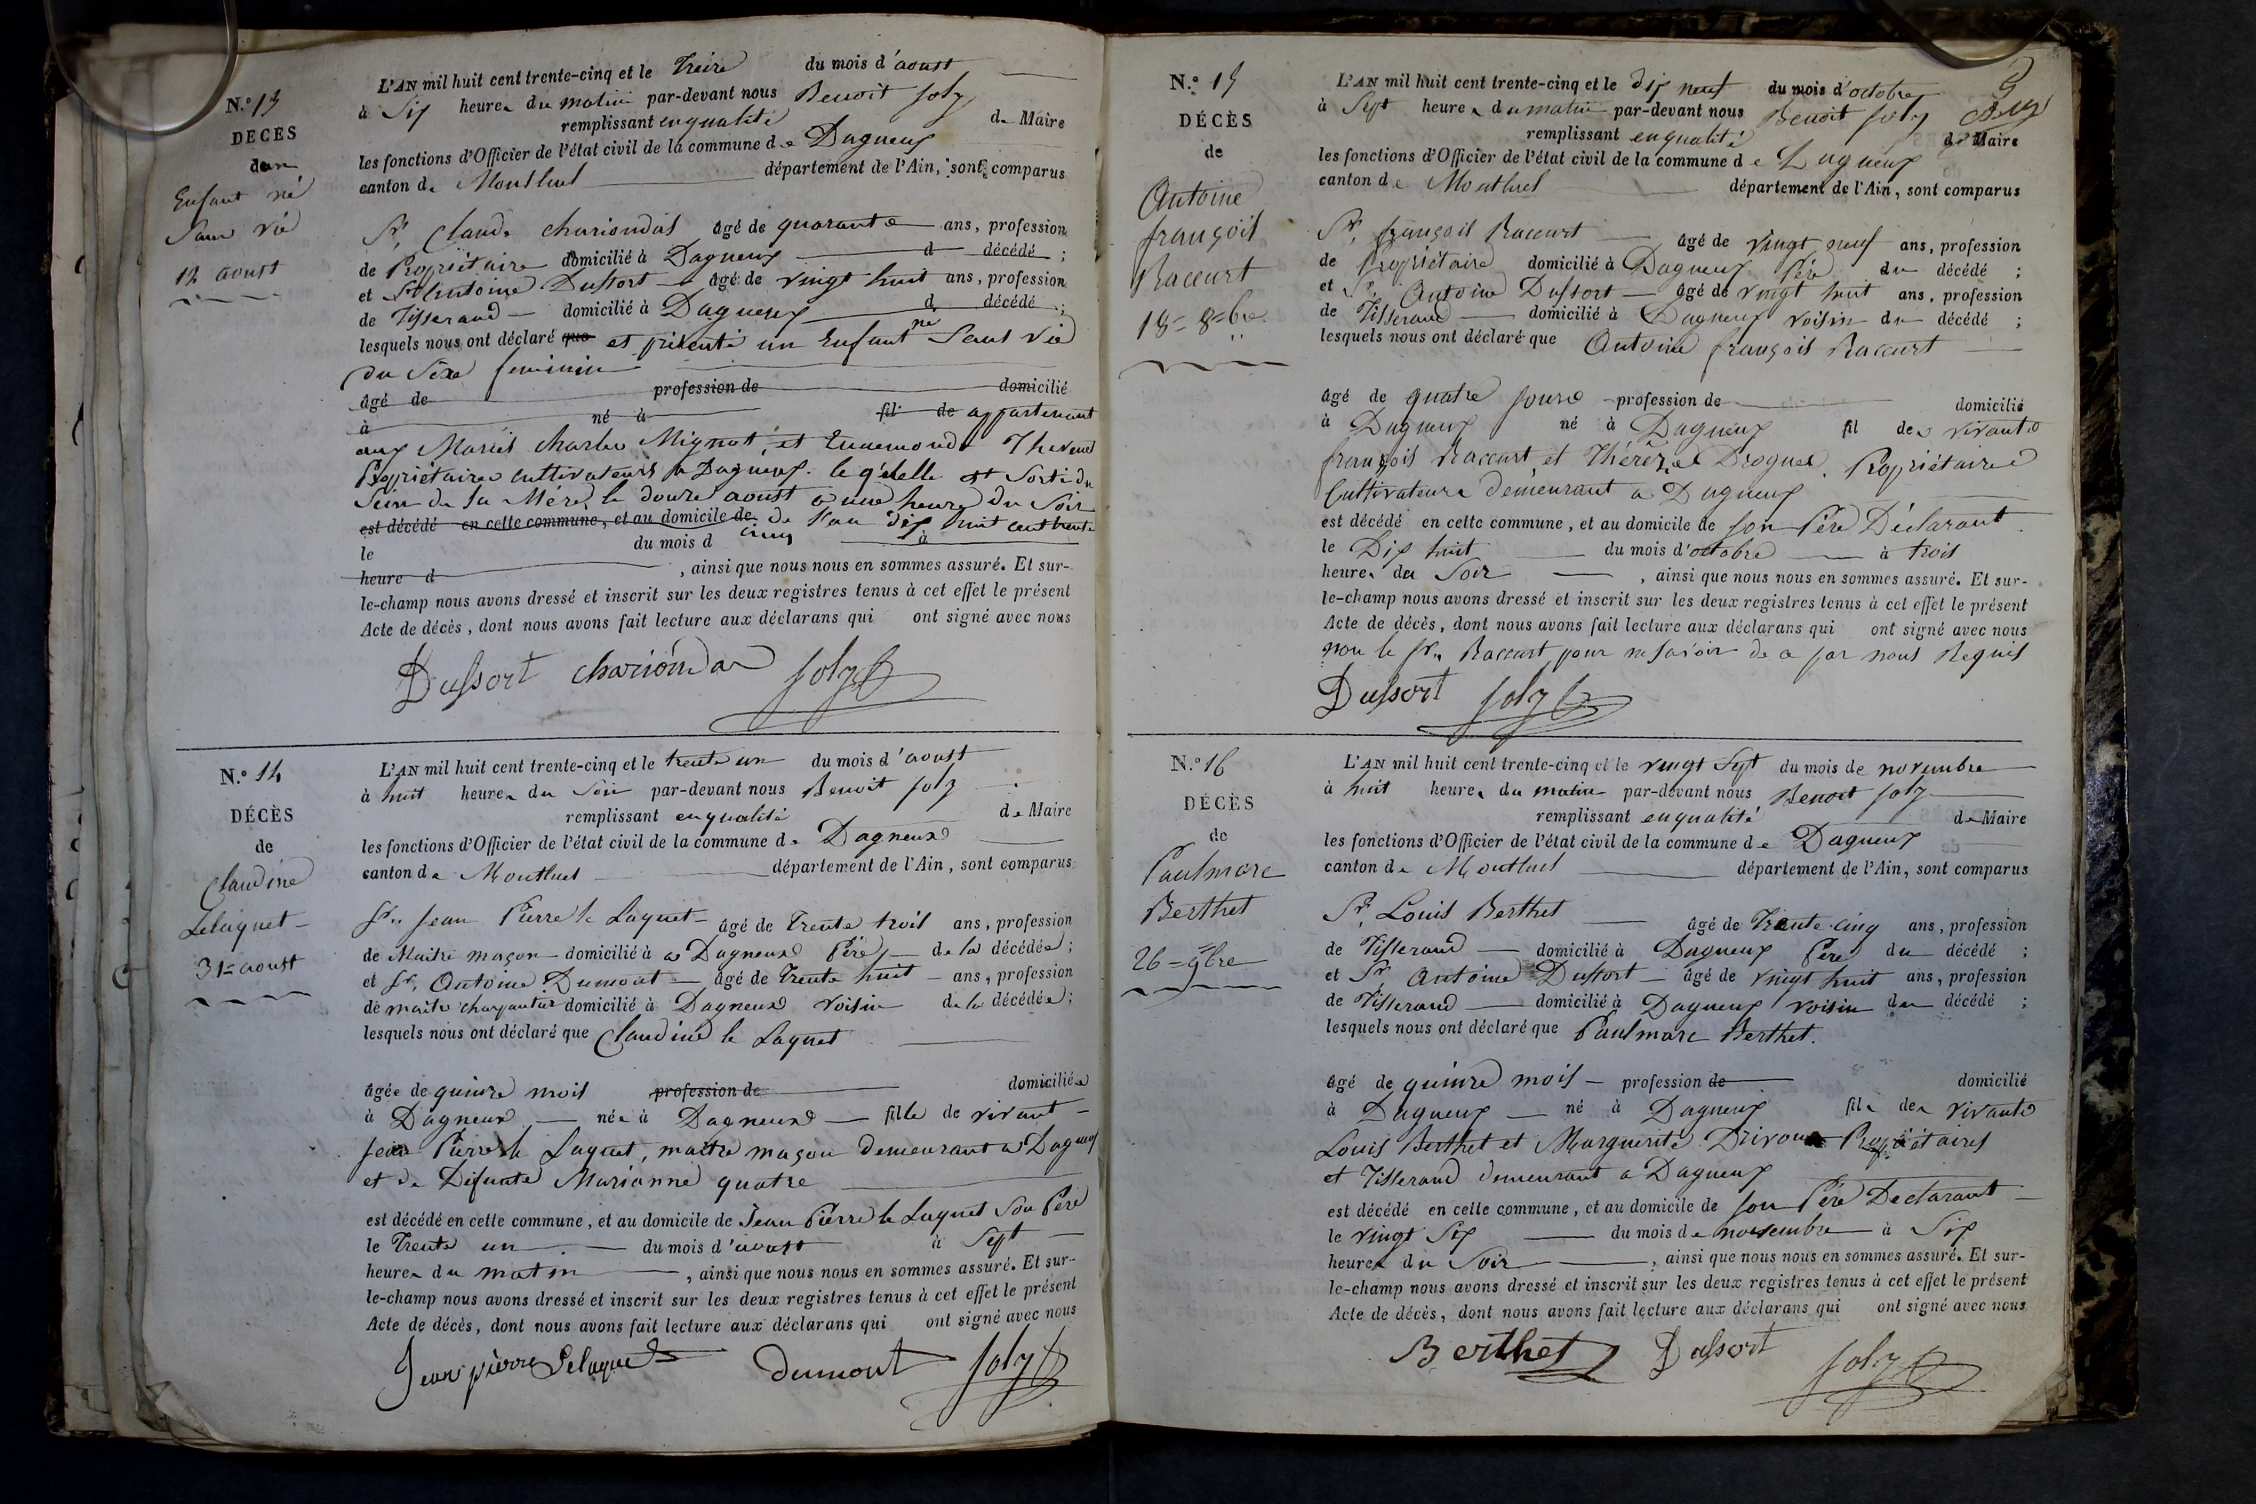 N.º 13
DÉCÈS
dun
Enfant né
Sans vie
12 aoust
L'AN mil huit cent trente-cinq et le Treize du mois d'aoust
à Six heures du matin par-devant nous Benoit Joly
remplissant en qualité de Maire
les fonctions d'Officier de l'état civil de la commune de Dagneux
canton de Montluel département de l'Ain, sont comparus
Sr. Claude chariondas âgé de quarante ans, profession
de Propriétaire domicilié à Dagneux d décédé ;
et Sr Antoine Dussort âgé de vingt huit ans, profession
de Tisserand domicilié à Dagneux d décédé ;
lesquels nous ont déclaré que et présenté un Enfant né Sans vie
du Sexe feminin
âgé de profession de domicilié
à né à fil de appartenant
aux Mariés charles Mignot, et Ennemonde Thevenet
Propriétaires cultivateurs a Dagneux. le qu'elle est Sorti du
Sein de Sa Mére, le douze aoust a une heure du Soir
est décédé en cette commune, et au domicile de de l'an dix huit cent trente
le du mois d cinq à
heure d , ainsi que nous nous en sommes assuré. Et sur-
le-champ nous avons dressé et inscrit sur les deux registres tenus à cet effet le présent
Acte de décès, dont nous avons fait lecture aux déclarans qui ont signé avec nous
Dussort chariondas Joly
N.º 14
DÉCÈS
de
Claudine
Lelaquet
31= aoust
L'AN mil huit cent trente-cinq et le trente un du mois d'aoust
à huit heures du Soir par-devant nous Benoit Joly
remplissant en qualité de Maire
les fonctions d'Officier de l'état civil de la commune de Dagneux
canton de Montluel département de l'Ain, sont comparus
Sr. Jean Pierre le Laquet âgé de Trente trois ans, profession
de Maitre maçon domicilié à a Dagneux Pére de la décédée ;
et Sr. Antoine Dumont âgé de Trente huit ans, profession
de maitre charpantier domicilié à Dagneux voisin de la décédée ;
lesquels nous ont déclaré que Claudine le Laquet
âgée de quinze mois profession de domiciliée
à Dagneux née à Dagneux fille de vivant
Jean Pierre le Laquet, maitre maçon demeurant a Dagneux
et de Defunte Marianne quatre
est décédé en cette commune, et au domicile de Jean Pierre le Laquet Son Pére
le Trente un du mois d'aoust à Sept
heures du matin , ainsi que nous nous en sommes assuré. Et sur-
le-champ nous avons dressé et inscrit sur les deux registres tenus à cet effet le présent
Acte de décès, dont nous avons fait lecture aux déclarans qui ont signé avec nous
Jean pierre Lelaquet dumont Joly
N.º 15
DÉCÈS
de
Antoine
françois
Baccart
18= 8=bre
L'AN mil huit cent trente-cinq et le dix neuf du mois d'octobre
à Sept heures du matin par-devant nous Benoit Joly
remplissant en qualité de Maire
les fonctions d'Officier de l'état civil de la commune de Dagneux
canton de Montluel département de l'Ain, sont comparus
Sr. françois Baccart âgé de vingt neuf ans, profession
de Propriétaire domicilié à Dagneux Pére du décédé ;
et Sr. Antoine Dussort âgé de vingt huit ans, profession
de Tisserand domicilié à Dagneux voisin du décédé ;
lesquels nous ont déclaré que Antoine françois Baccart
âgé de quatre jours profession de domicilié
à Dagneux né à Dagneux fil des vivants
françois Baccart et Thérèze Drogue. Propriétaires
Cultivateurs demeurant a Dagneux
est décédé en cette commune, et au domicile de Son Pére Déclarant
le Dix huit du mois d'octobre à trois
heures du Soir , ainsi que nous nous en sommes assuré. Et sur-
le-champ nous avons dressé et inscrit sur les deux registres tenus à cet effet le présent
Acte de décès, dont nous avons fait lecture aux déclarans qui ont signé avec nous
non le Sr. Baccart pour ne Savoir de a par nous Requis
Dussort Joly
N.º 16
DÉCÈS
de
Paulmarc
Berthet
26= 9bre
L'AN mil huit cent trente-cinq et le vingt Sept du mois de novembre
à huit heures du matin par-devant nous Benoit Joly
remplissant en qualité de Maire
les fonctions d'Officier de l'état civil de la commune de Dagneux
canton de Montluel département de l'Ain, sont comparus
Sr. Louis Berthet âgé de Trente cinq ans, profession
de Tisserand domicilié à Dagneux Pére du décédé ;
et Sr. Antoine Dussort âgé de vingt huit ans, profession
de Tisserand domicilié à Dagneux voisin du décédé ;
lesquels nous ont déclaré que Paulmarc Berthet.
âgé de quinze mois profession de domicilié
à Dagneux né à Dagneux fils des vivants
Louis Berthet et Marguerite Propriétaires
et Tisserand demeurant a Dagneux
est décédé en cette commune, et au domicile de Son Pére Declarant
le vingt Six du mois de novembre à Six
heures du Soir , ainsi que nous nous en sommes assuré. Et sur-
le-champ nous avons dressé et inscrit sur les deux registres tenus à cet effet le présent
Acte de décès, dont nous avons fait lecture aux déclarans qui ont signé avec nous
Berthet Dussort Joly